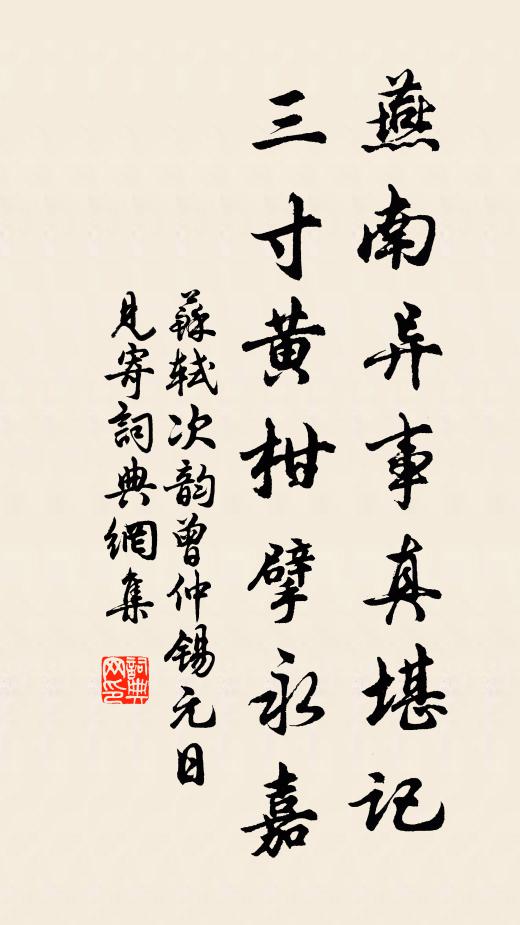 燕南异事真堪记
三寸黄柑擘永嘉
蘇軾次韵曾仲锡元日
見寄詞典網集
詞典
网印